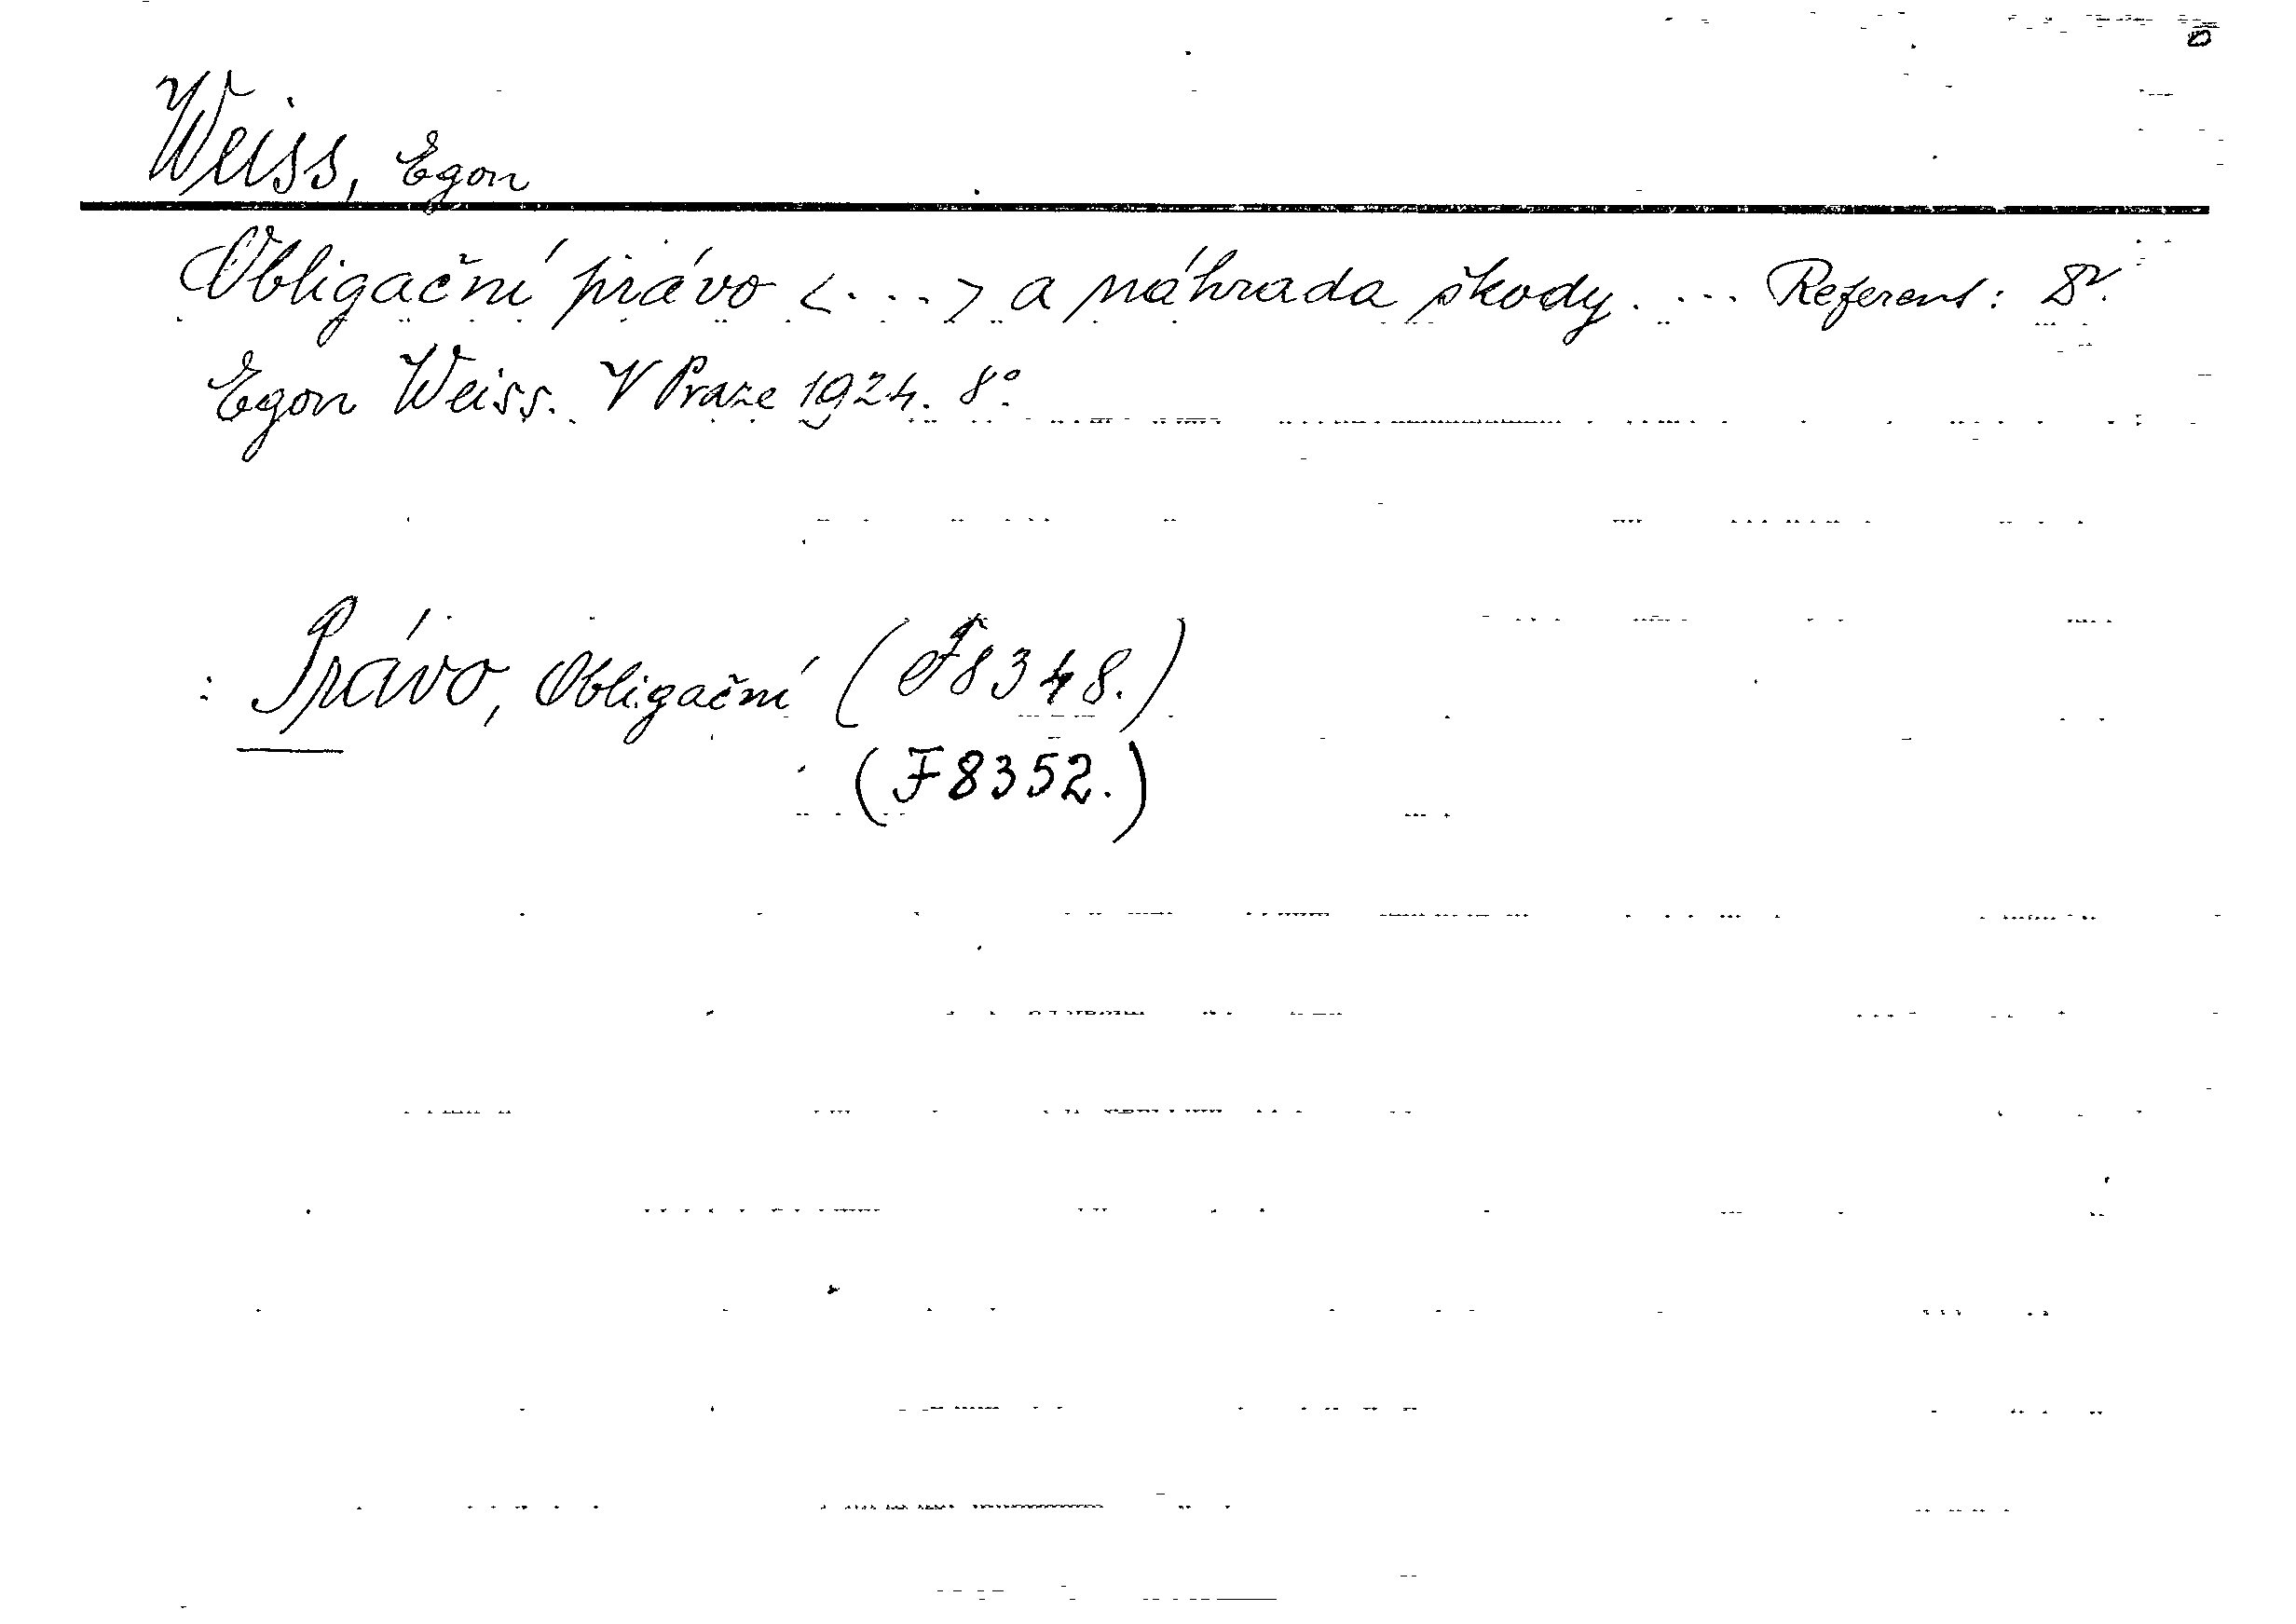 Weiss, Egon
Obligační právo <...> a náhrada škody. ... Referent: Dr.
Egon Weiss. V Praze 1924. 8°.
: Právo, Obligační (F8348.)
(F8352.)